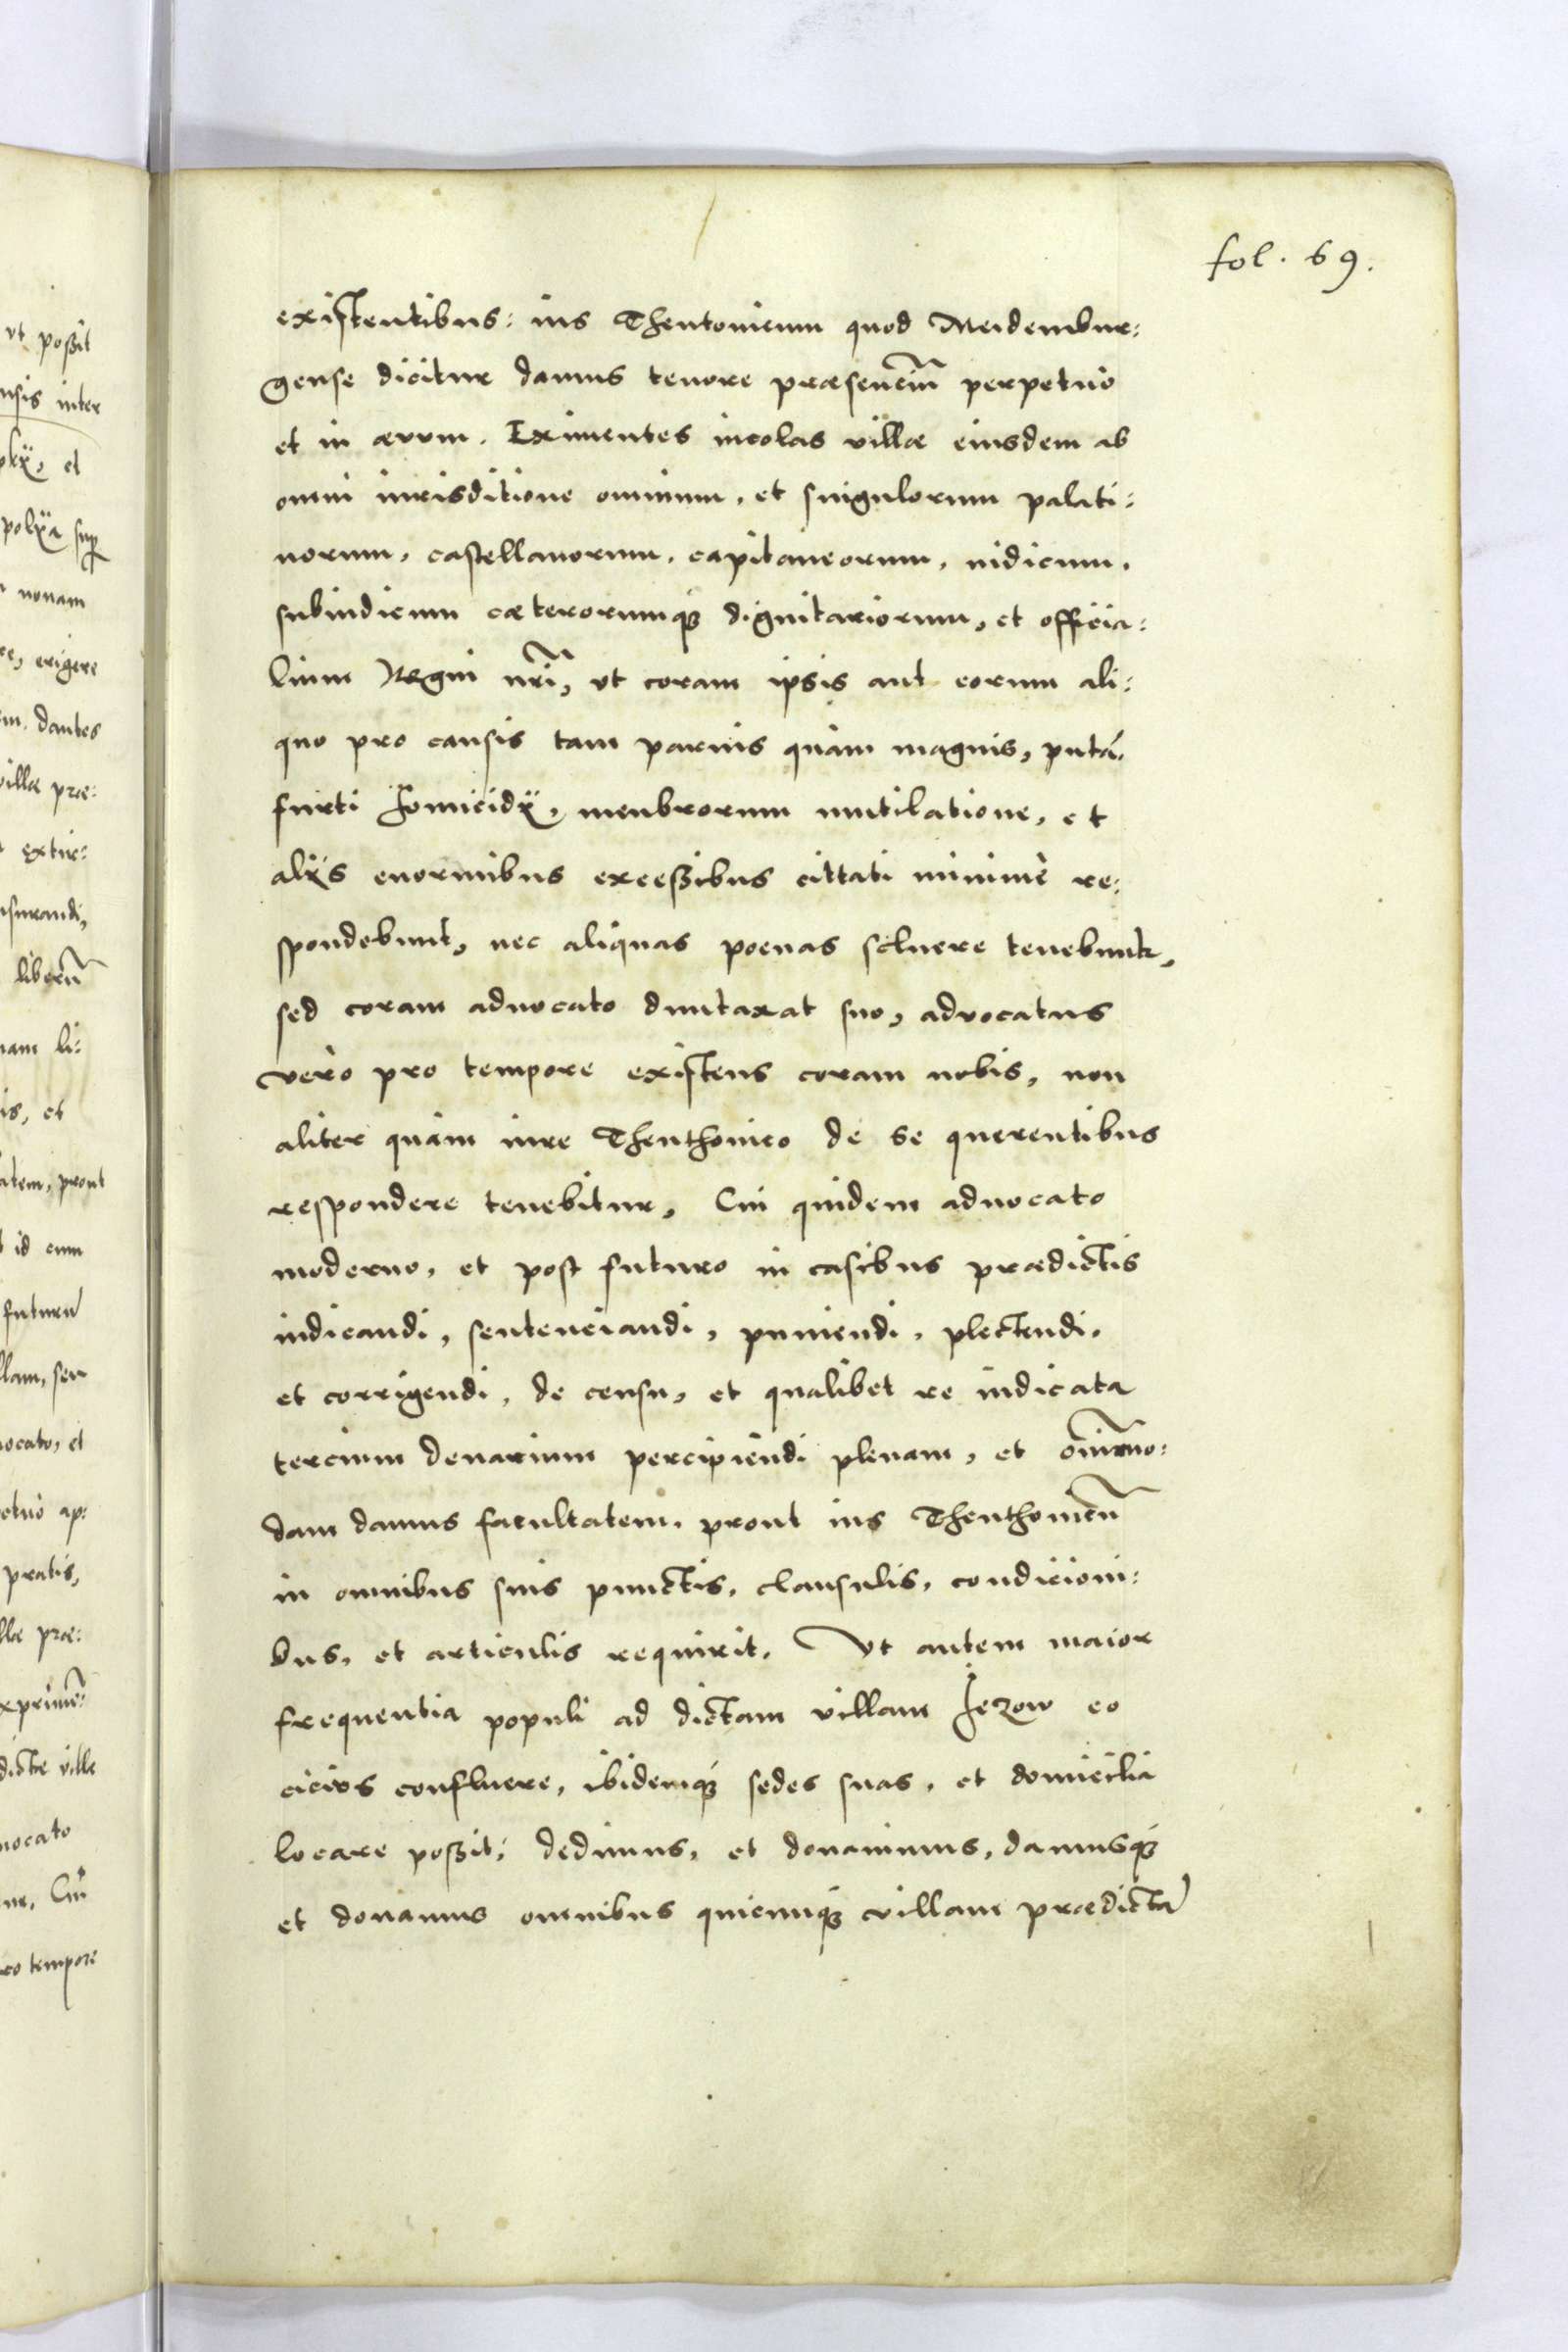 fol. 69.
existentibus: ius Theutonicum quod Meidembur:
gense dicitur damus tenore præsenciũ perpetuò
et in ævum. Eximentes incolas villæ eiusdem ab
omni iurisditione omnium, et singulorum palati:
norum, castellanorum, capitaneorum, iudicum,
subiudicum cæterorumq; dignitariorum, et officia:
lium Regni nr̃i, vt coram ipsis aut eorum ali:
quo pro causis tam parvis quàm magnis, putá.
furti homicidÿ, menbrorum mutilatione, et
alÿs enormibus exceßibus cittati minimè re:
spondebunt, nec aliquas poenas soluere tenebuntr,
sed coram aduocato duntaxat suo, advocatus
verò pro tempore existens coram nobis, non
aliter quàm iure Theuthonico de se querentibus
respondere tenebitur, Cui quidem aduocato
moderno, et post futuro in casibus prædictis
iudicandi, sentenciandi, puniendi, plectendi,
et corrigendi, de censu, et qualibet re iudicata
tercium denarium percipiendi plenam, et oĩmmo:
dam damus facultatem, prout ius Theuthonicũ
in omnibus suis punctis, clausulis, condicioni:
bus, et articulis requirit, Vt autem maior
frequentia populi ad dictam villam Jezow eo
cicius confluere, ibidemq; sedes suas, et domicilia
locare poßit, dedimus, et donauimus, damusq;
et donamus omnibus quicumq; villam prædictã
vt poßit
nsis inter
et
polÿa sup
nonam
erigere
dantes
villæ præ:
extir:
surandi,
liberũ
nam li:
is, et
atem, prout
id cum
futurũ
llam, seu
ocato, et
etuò ap:
pratis,
llæ præ:
xprimẽ:
dictæ ville
uocato
Cui
ro tempore